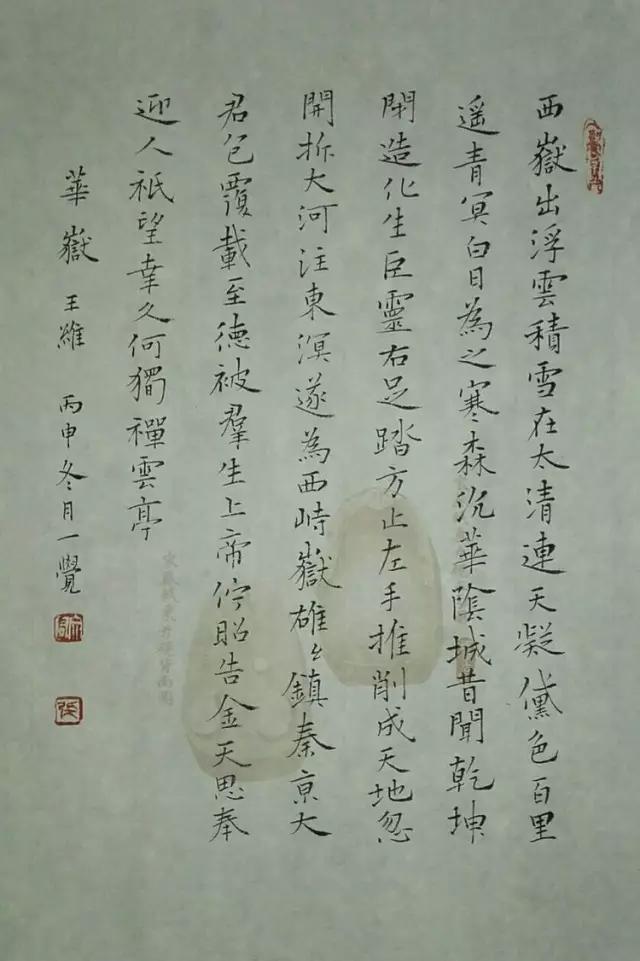 西嶽出浮雲積雪在太清連天凝黛色百里
遥青冥白日為之寒森沉華陰城昔聞乾坤
閇造化生巨靈右足踏方止左手推削成天地忽
開拆大河注東溟遂為西峙嶽雄々鎮秦亰大
君包覆載至德被羣生上帝佇昭告金天思奉
迎人祇望幸久何獨禪雲亭
華嶽 王維 丙申冬月一覺